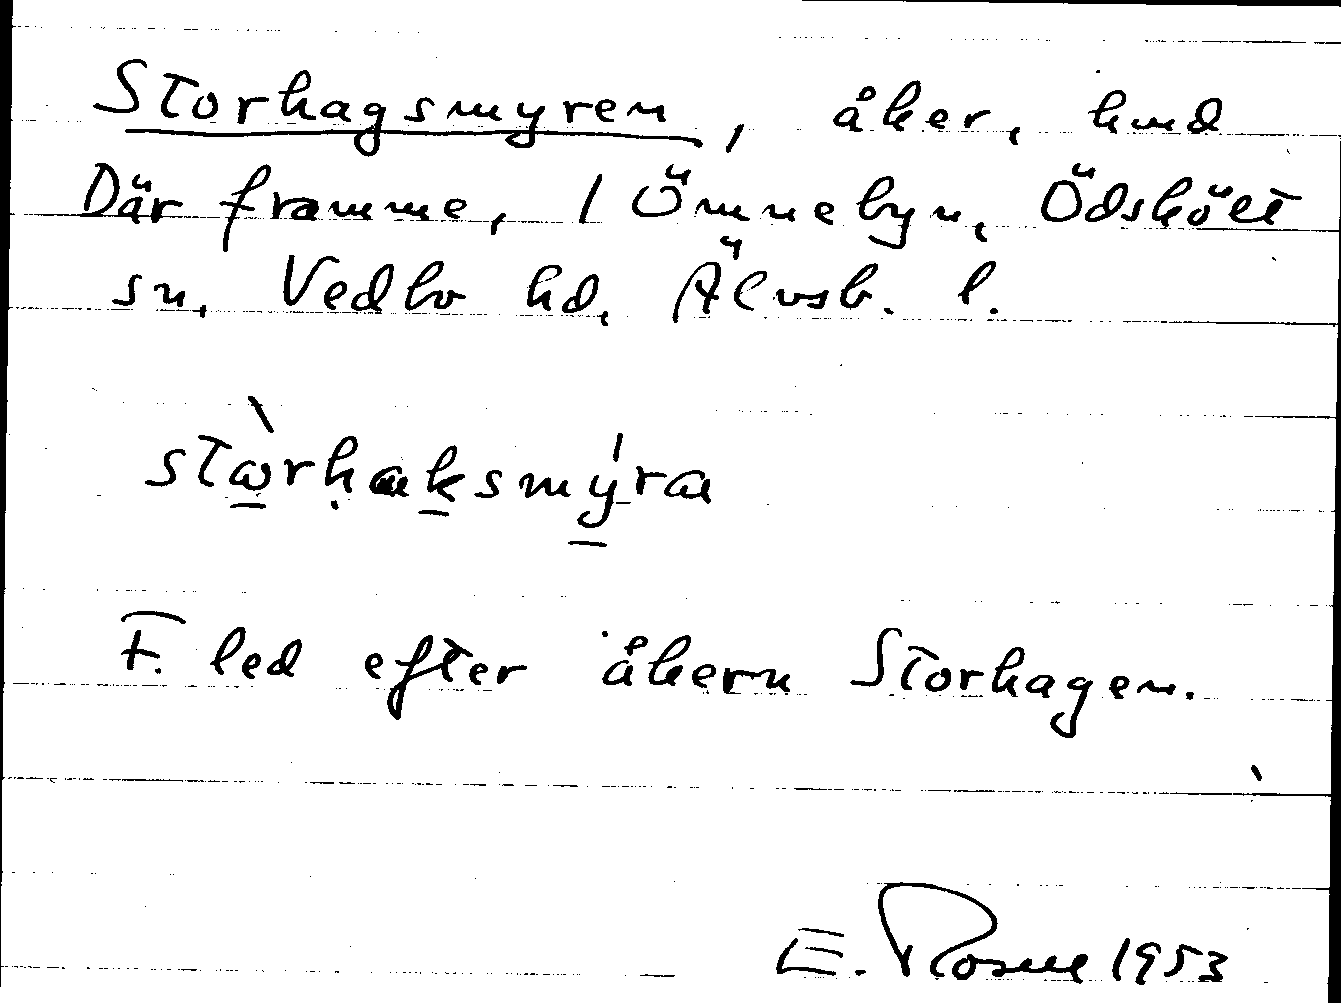 Storhagsmyren, åker, hmd
Där framme, 1 Ömnebyn, Ödskölt
sn, Vedbo hd, Älvsb. l.
stωrhaksmýra
F. led efter åkern Storhagen.
E. Rosne 1953